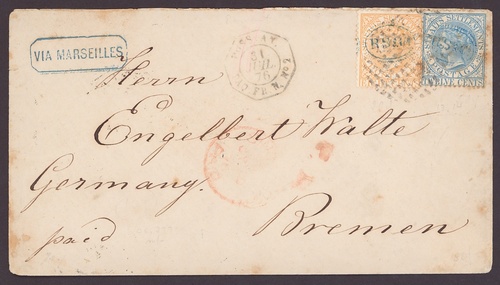 VIA MARSEILLES
21
JUIL.
76
STRAITS SETTLEMENTS
POSTAGE
CENTS
Herrn
Engelbert Walte
Germany.
Bremen
paid